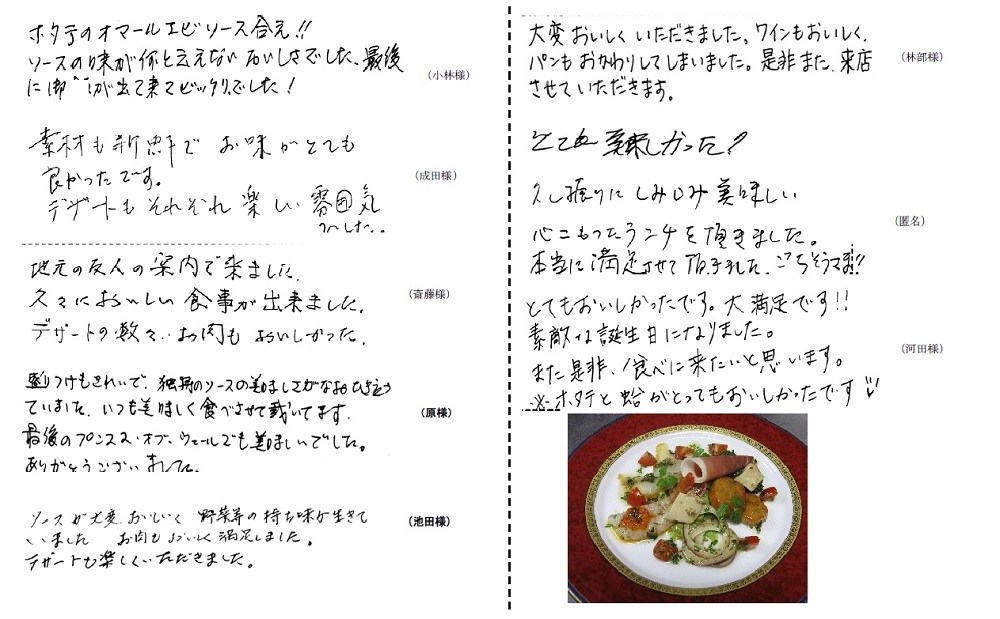 ホタテのオマールエビソース合え!!
ソースの味が何と云えないおいしさでした、最後
に が出て来てビックリでした!
(小林様)
素材も新鮮で お味がとても
良かったです。
デザートもそれぞれ楽しい雰囲気
でした..
(成田様)
地元の友人の案内で来ました.
久々においしい食事が出来ました.
デザートの数々..お肉もおいしかった.
(斎藤様)
盛りつけもきれいで、独特のソースの美味しさが
ていました. いつも美味しく食べさせて戴いてます.
最後のプリンス・オブ・ウェールズも美味しいでした。
ありがとうございました.
(原様)
ソースが大変おいしく 野菜等の持ち味が生きて
いました お肉もおいしく満足しました。
デザートも楽しくいただきました。
(池田様)
大変おいしくいただきました。ワインもおいしく、
パンもおかわりしてしまいました。是非また、来店
させていただきます。
(林部様)
とても美味しかった!
久し振りにしみじみ美味しい
心こもったランチを頂きました。
本当に満足させて頂きました、ごちそうさま!!
(匿名)
とてもおいしかったです。大満足です!!
素敵な誕生日になりました。
また是非、食べに来たいと思います。
※ホタテと蛤がとってもおいしかったです♡
(河田様)